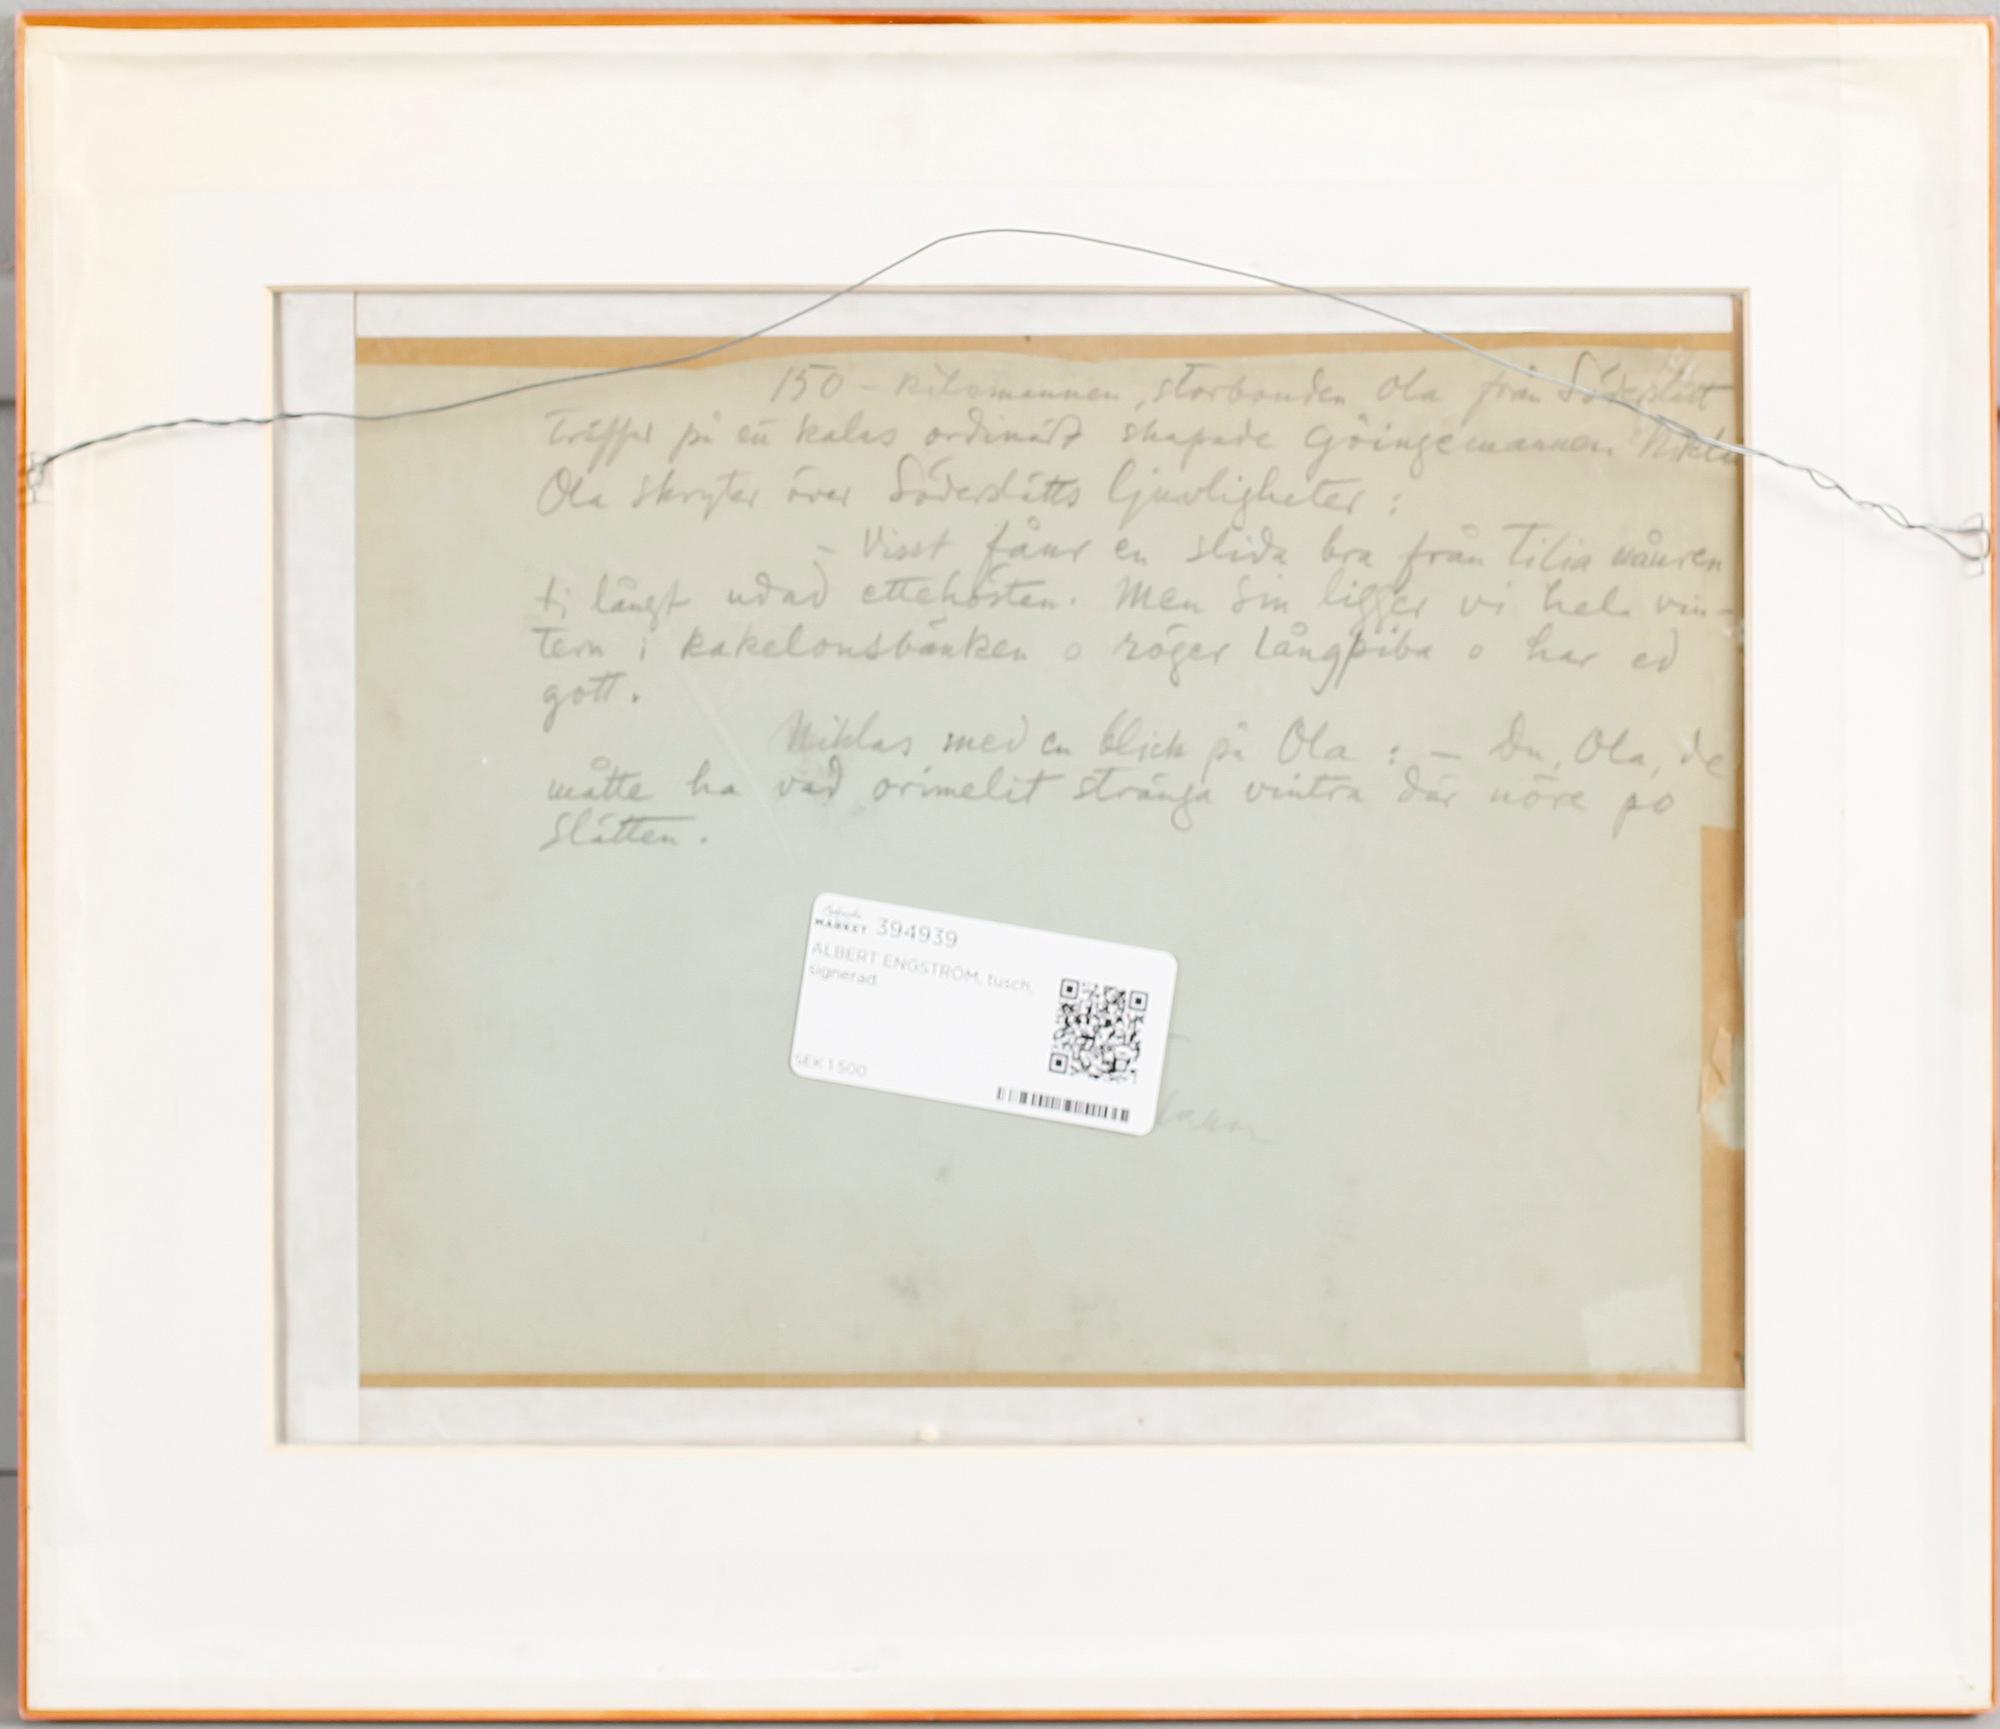 150 - kilosmannen, storbonden Ola från Söderslätt
träffar på ett kalas ordinärt skapade Göingemannen Nikla
Ola skryter över Söderslätts ljuvligheter :
- Visst fåur en slida bra från Tilia måuren
ti långt udad ettehösten. Men sin ligger vi hela vin-
tern i kakelonsbänken o röger långpiba o har ed
gott.
Niklas med en blick på Ola : - Du, Ola, de
måtte ha vad orimelit stränga vintra där nöre po
Slätten.
MARKET 394939
ALBERT ENGSTRÖM, tusch,
signerad.
SEK 1 500